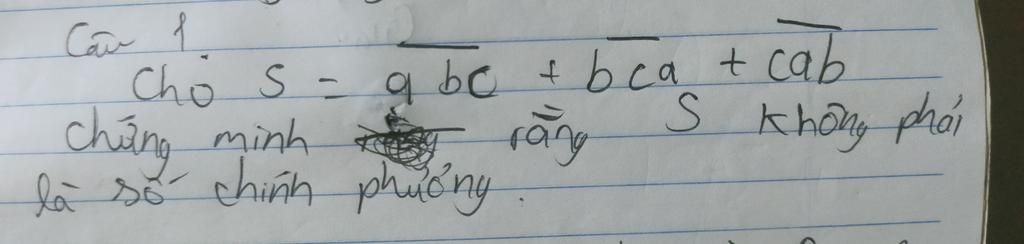 Câu 1.
Cho S = \overline{abc} + \overline{bca} + \overline{cab}
chứng minh rằng S không phải
là số chính phương.